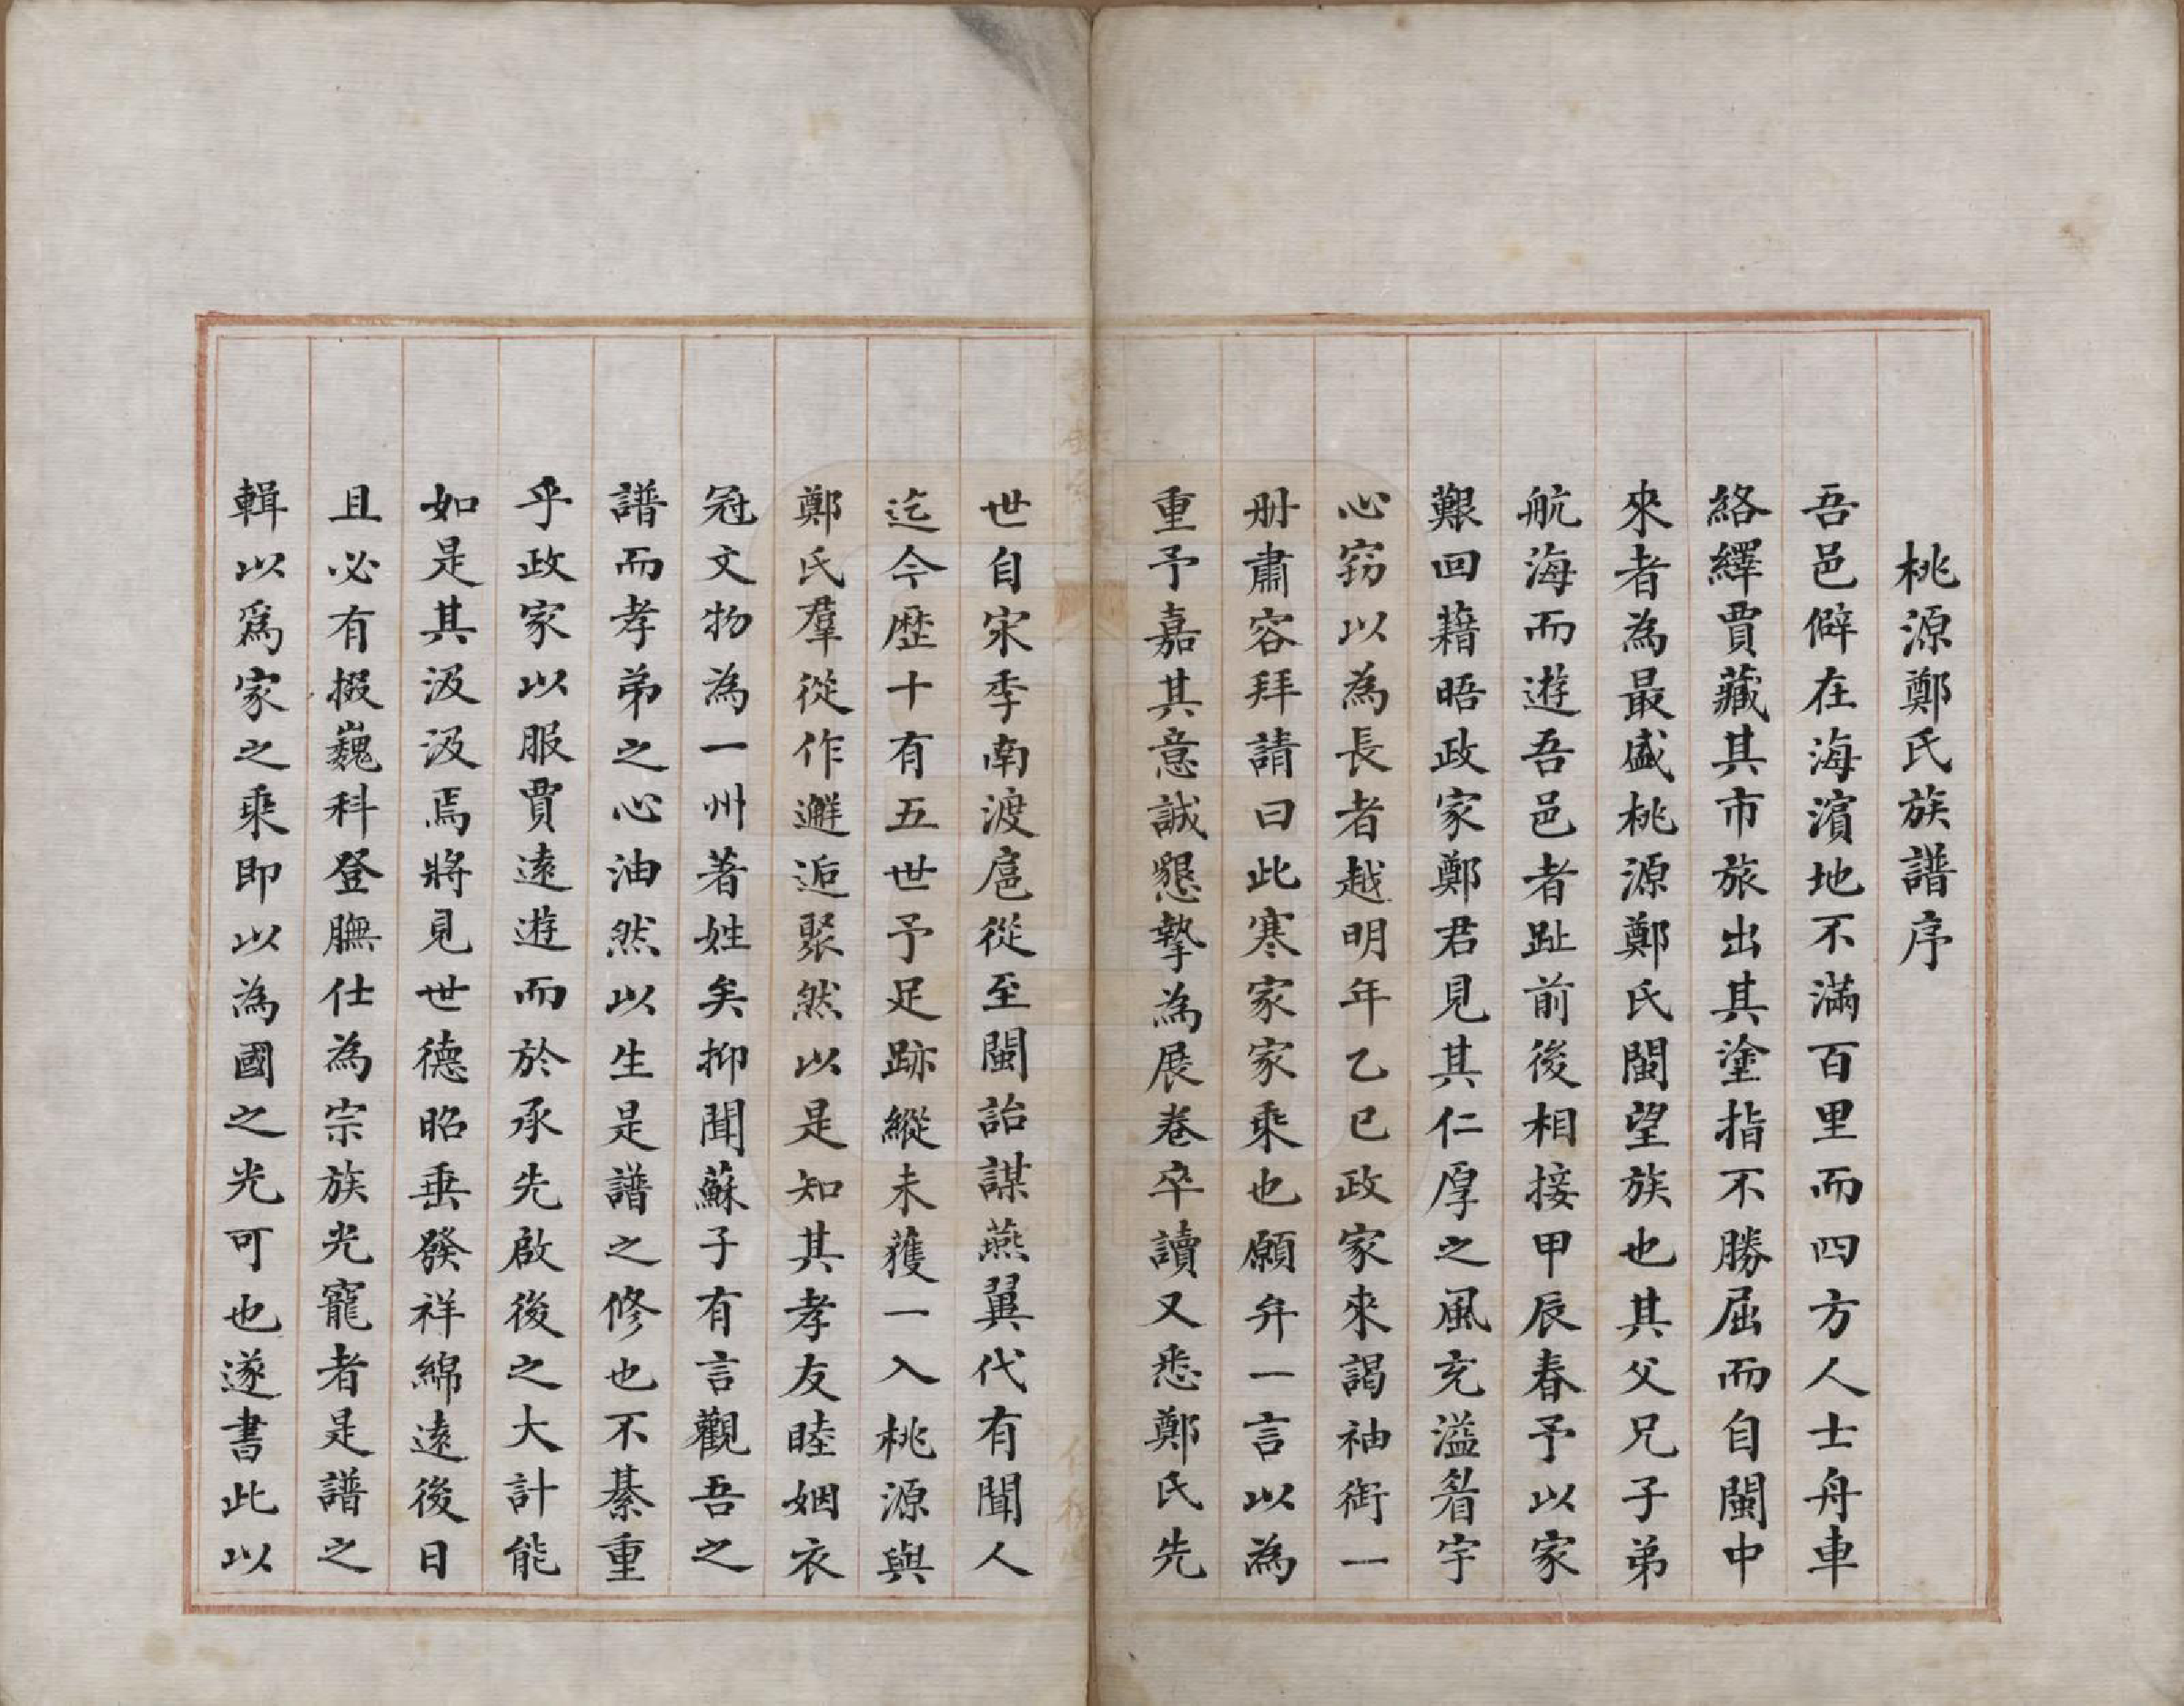 桃源鄭氏族譜序
吾邑僻在海濱地不滿百里而四方人士舟車
絡繹賈藏其市旅出其塗指不勝屈而自閩中
來者為最盛桃源鄭氏閩望族也其父兄子弟
航海而遊吾邑者趾前後相接甲辰春予以家
艱回籍晤政家鄭君見其仁厚之風充溢眉宇
心窃以為長者越明年乙巳政家來謁袖衔一
册肅容拜請曰此寒家家乘也願弁一言以為
重予嘉其意誠懇摯為展卷卒讀又悉鄭氏先
世自宋季南渡扈從至閩詒謀燕翼代有聞人
迄今歷十有五世予足跡縱未獲一入桃源與
鄭氏羣從作邂逅聚然以是知其孝友睦姻衣
冠文物為一州著姓矣抑聞蘇子有言觀吾之
譜而孝弟之心油然以生是譜之修也不綦重
乎政家以服賈遠遊而於承先啟後之大計能
如是其汲汲焉將見世德昭垂發祥綿遠後日
且必有掇巍科登膴仕為宗族光寵者是譜之
輯以爲家之乘即以為國之光可也遂書此以